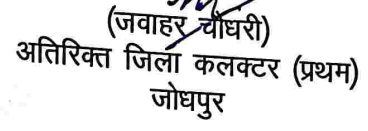 (जवाहर चौधरी)
अतिरिक्त जिला कलक्टर (प्रथम)
जोधपुर